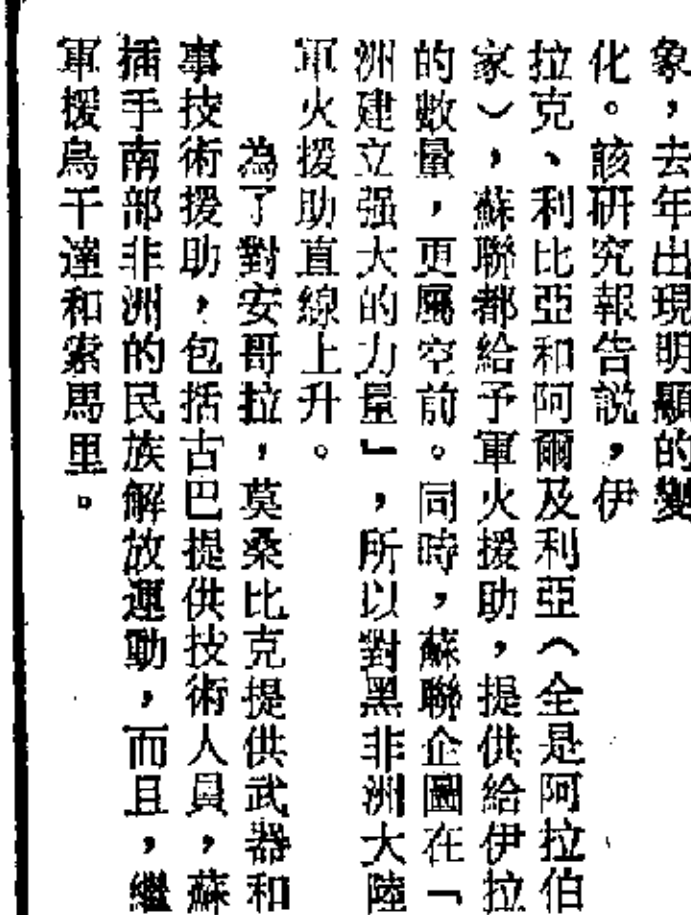 象，去年出現明顯的變
化。該研究報告説，伊
拉克、利比亞和阿爾及利亞（全是阿拉伯
家），蘇聯都給予軍火援助，提供給伊拉
的數量，更屬空前。同時，蘇聯企圖在「
洲建立强大的力量」，所以對黑非洲大陸
軍火援助直線上升。
為了對安哥拉，莫桑比克提供武器和
事技術援助，包括古巴提供技術人員，蘇
插手南部非洲的民族解放運動，而且，繼
軍援烏干達和索馬里。